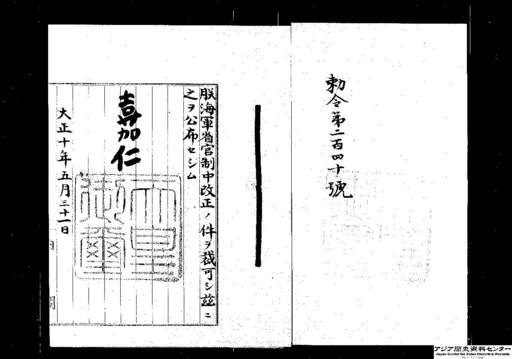 勅令第二百四十號
朕海軍省官制中改正ノ件ヲ裁可シ茲ニ
之ヲ公布セシム
嘉仁
大正十年五月三十一日
アジア歴史資料センター
Japan Center for Asian Historical Records